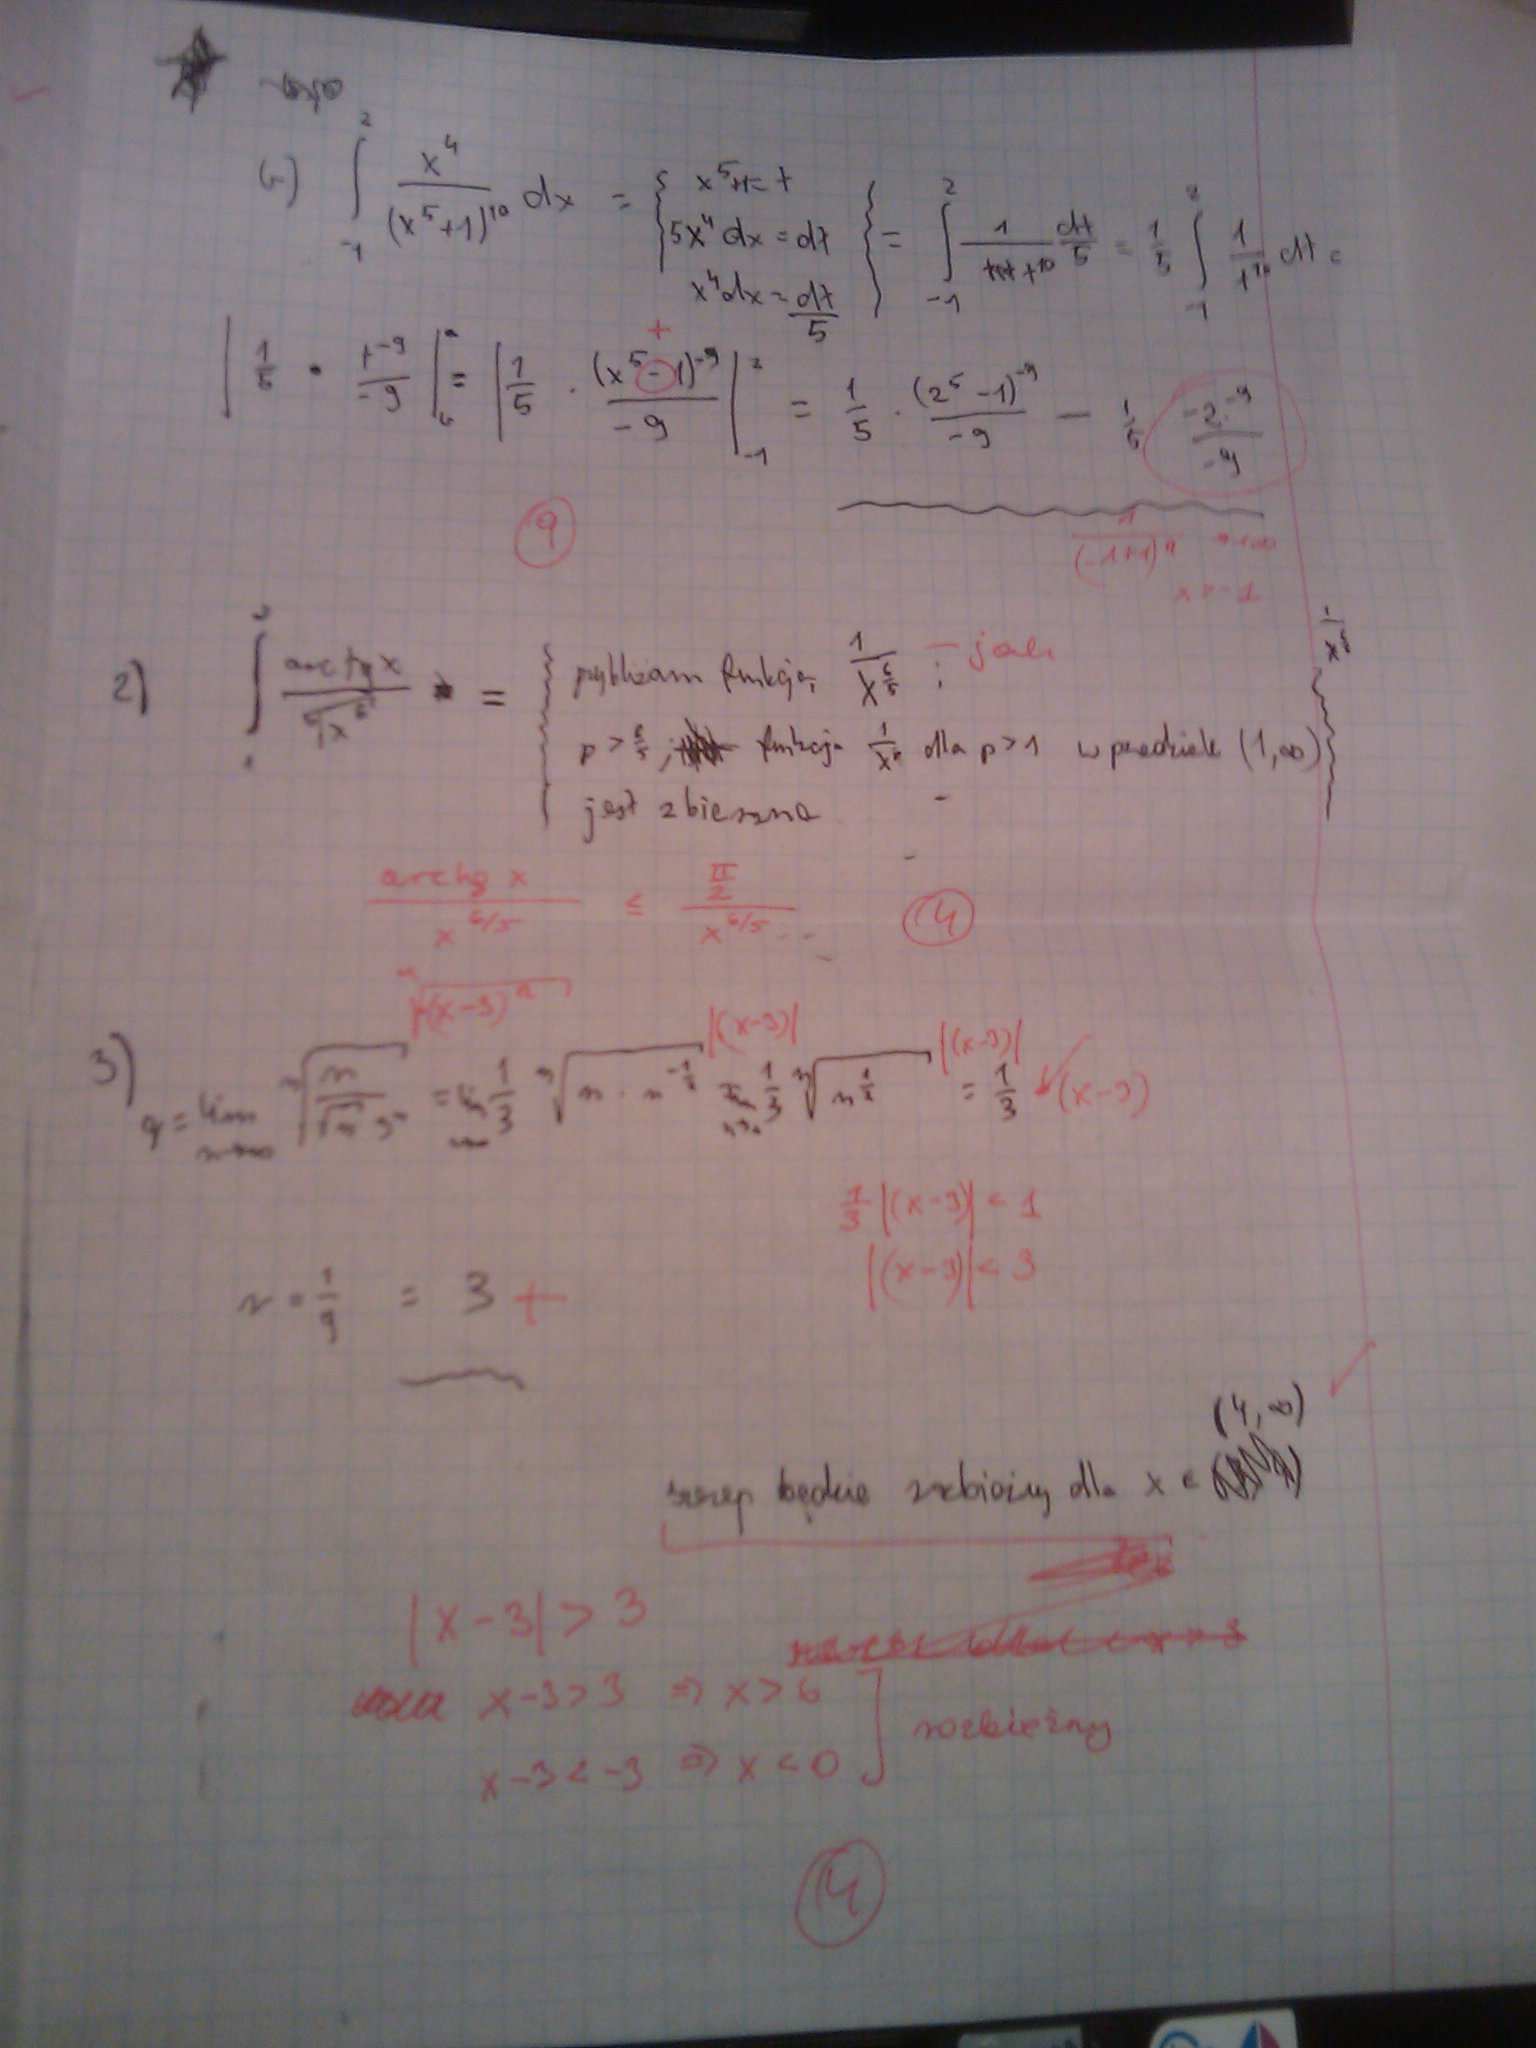 1) ∫_{-1}^{2} x⁴/(x⁵+1)¹⁰ dx = { x⁵+1=t
5x⁴dx = dt
x⁴dx = dt/5 } = ∫_{-1}^{2} 1/t¹⁰ dt/5 = 1/5 ∫_{-1}^{2} 1/t¹⁰ dt =
+
| 1/5 · t⁻⁹/-9 | = | 1/5 · (x⁵-1)⁻⁹/-9 |_{-1}^{2} = 1/5 · (2⁵-1)⁻⁹/-9 - 1/5 -2⁻⁹/-9
9
1/(-1+1)⁹ → +∞
x → -1
2) ∫ arctg x/⁵√x⁶ = { funkcję 1/x^{6/5} ; - jak
p > 6/5 ; funkcja 1/xᵖ dla p>1 w przedziale (1,∞)
jest zbieżna }
arctg x/x^{6/5} ≤ π/2/x^{6/5}
14
ⁿ√(x-3)ⁿ |(x-3)| |(x-3)|
3) g = lim_{n→∞} ⁿ√n/√n 3ⁿ = lim 1/3 ⁿ√n · n^{-1/2} = lim_{n→∞} 1/3 ⁿ√n^{1/2} = 1/3 (x-3)
1/3 |(x-3)| < 1
|(x-3)| < 3
r = 1/g = 3 +
(4,∞)
szereg będzie dla x ∈
|x-3| > 3
x-3>3 ⇒ x>6
x-3<-3 ⇒ x<0 ] rozbieżny
14